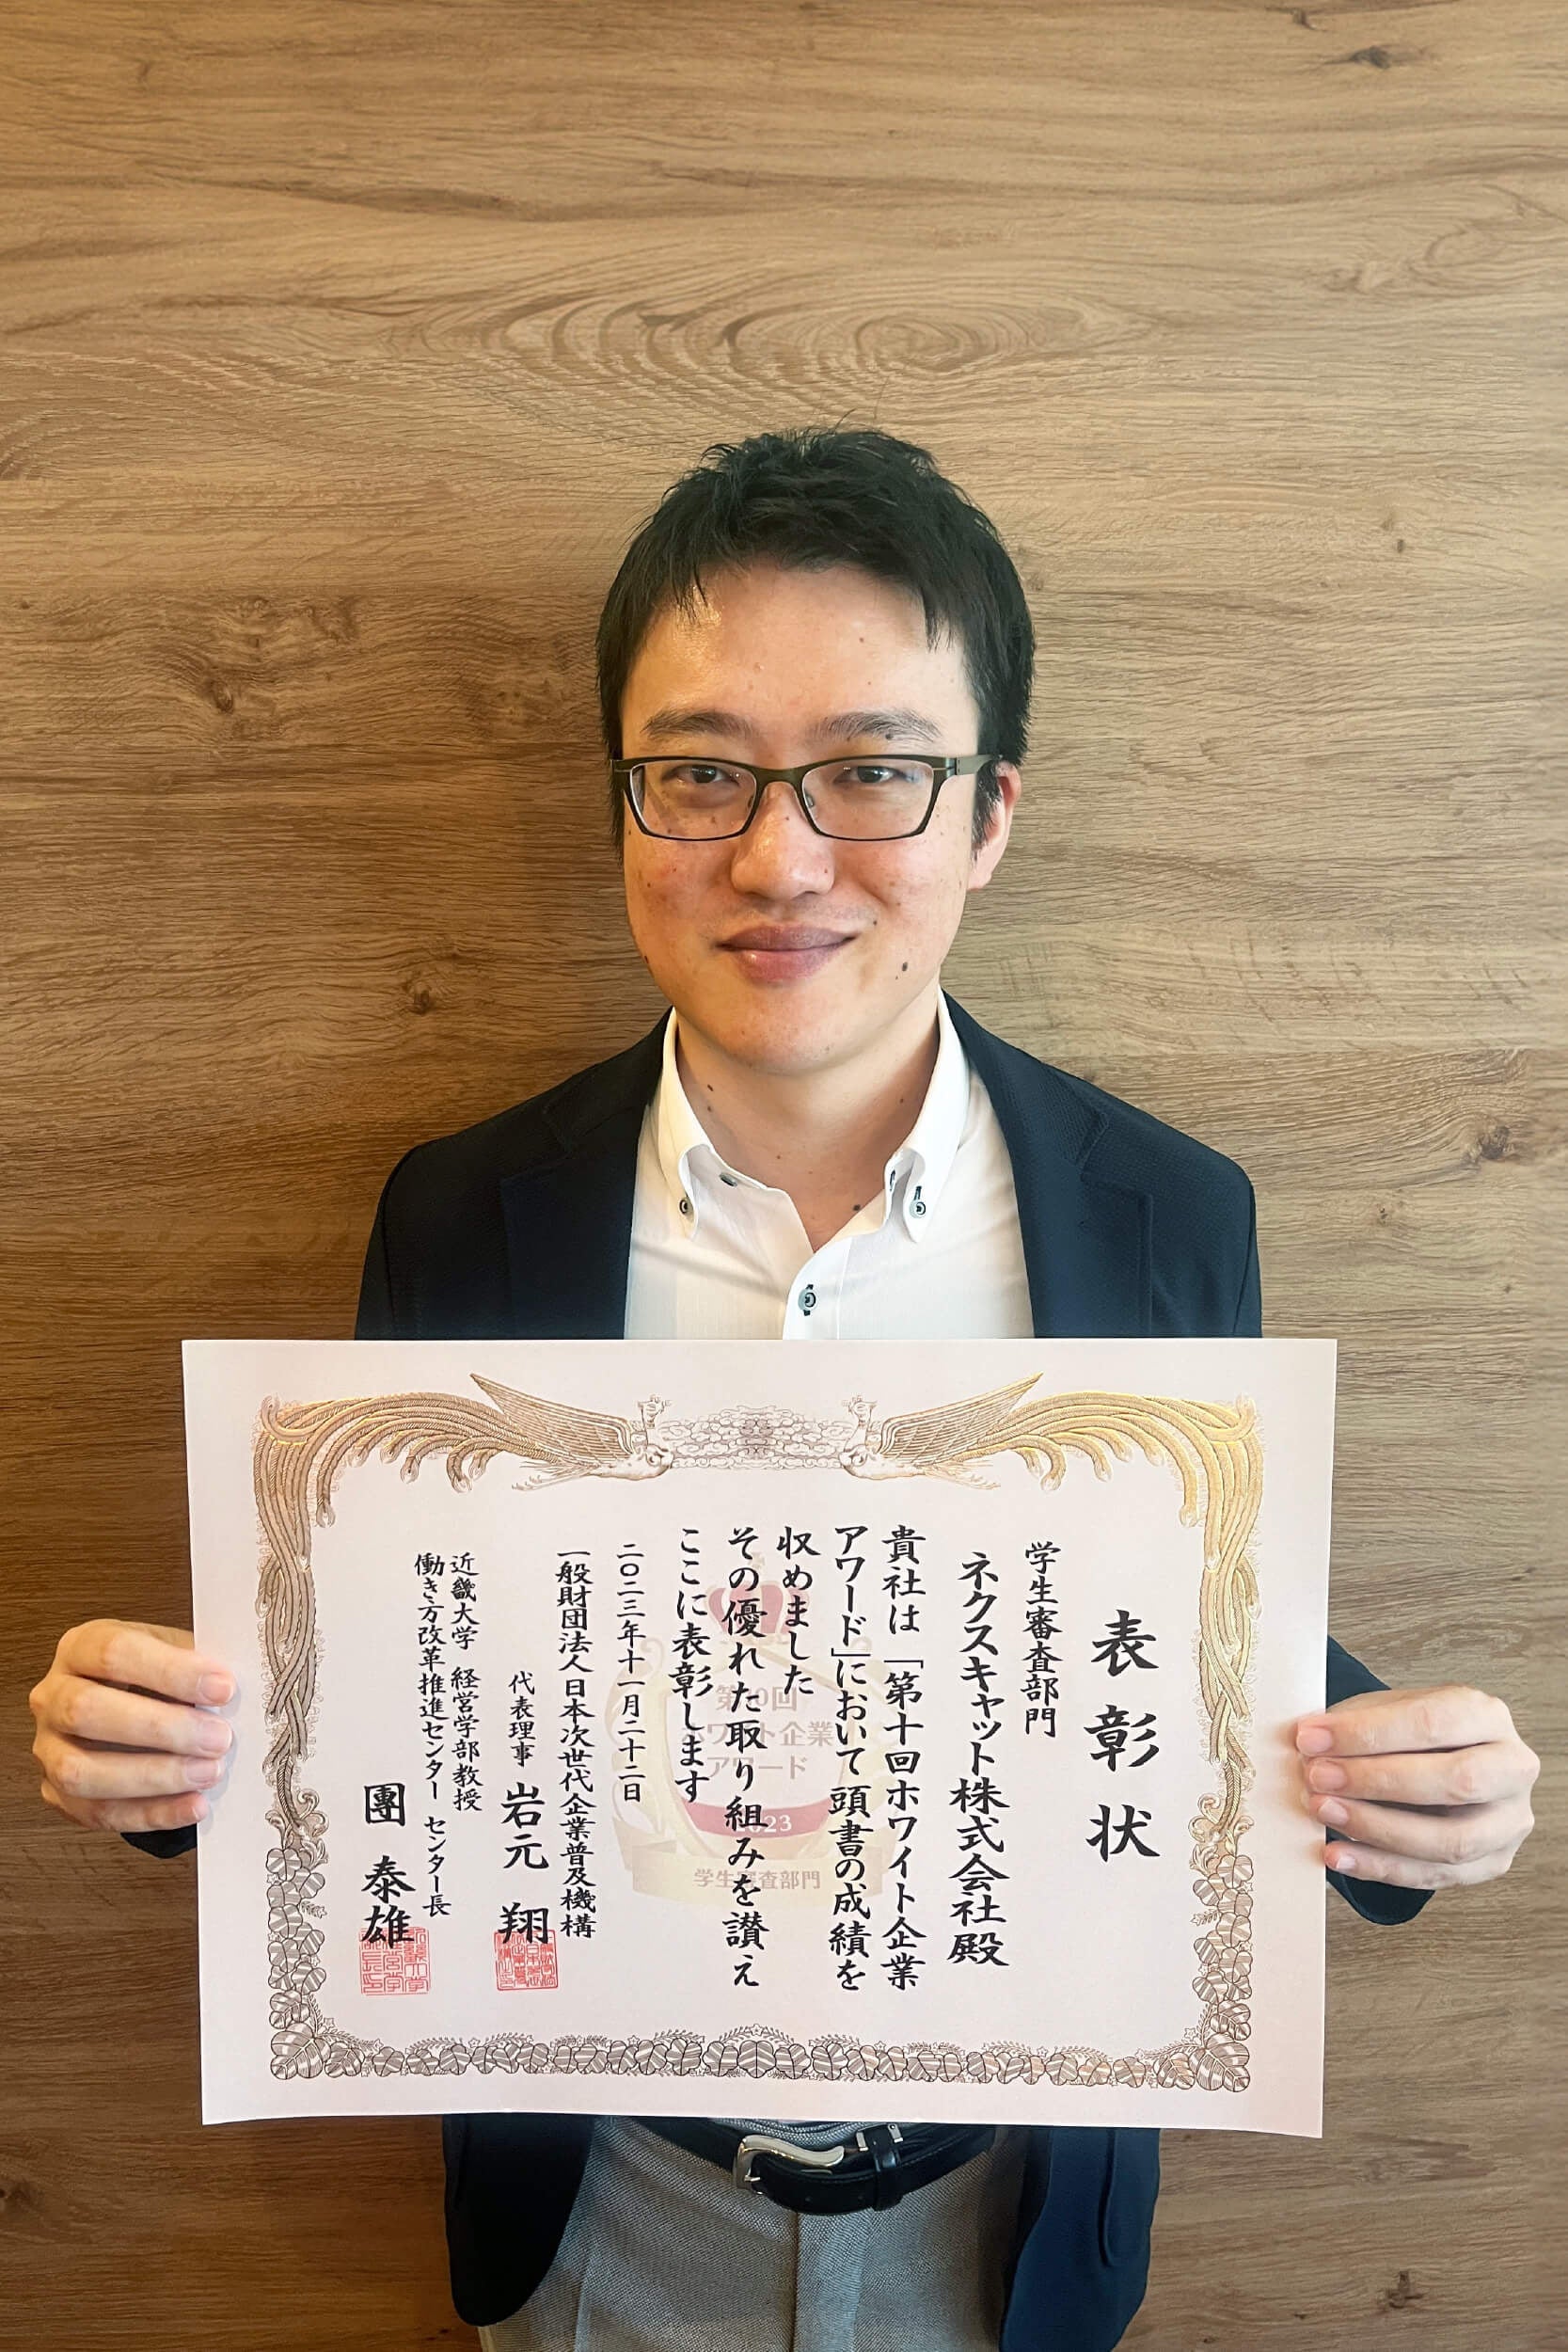 表彰状
学生審査部門
ネクスキャット株式会社殿
貴社は「第十回ホワイト企業
アワード」において頭書の成績を
収めました
その優れた取り組みを讃え
ここに表彰します
二〇二三年十一月二十二日
一般財団法人日本次世代企業普及機構
代表理事 岩元 翔
近畿大学 経営学部教授
働き方改革推進センター センター長
團 泰雄
第10回
ホワイト企業
アワード
2023
学生審査部門